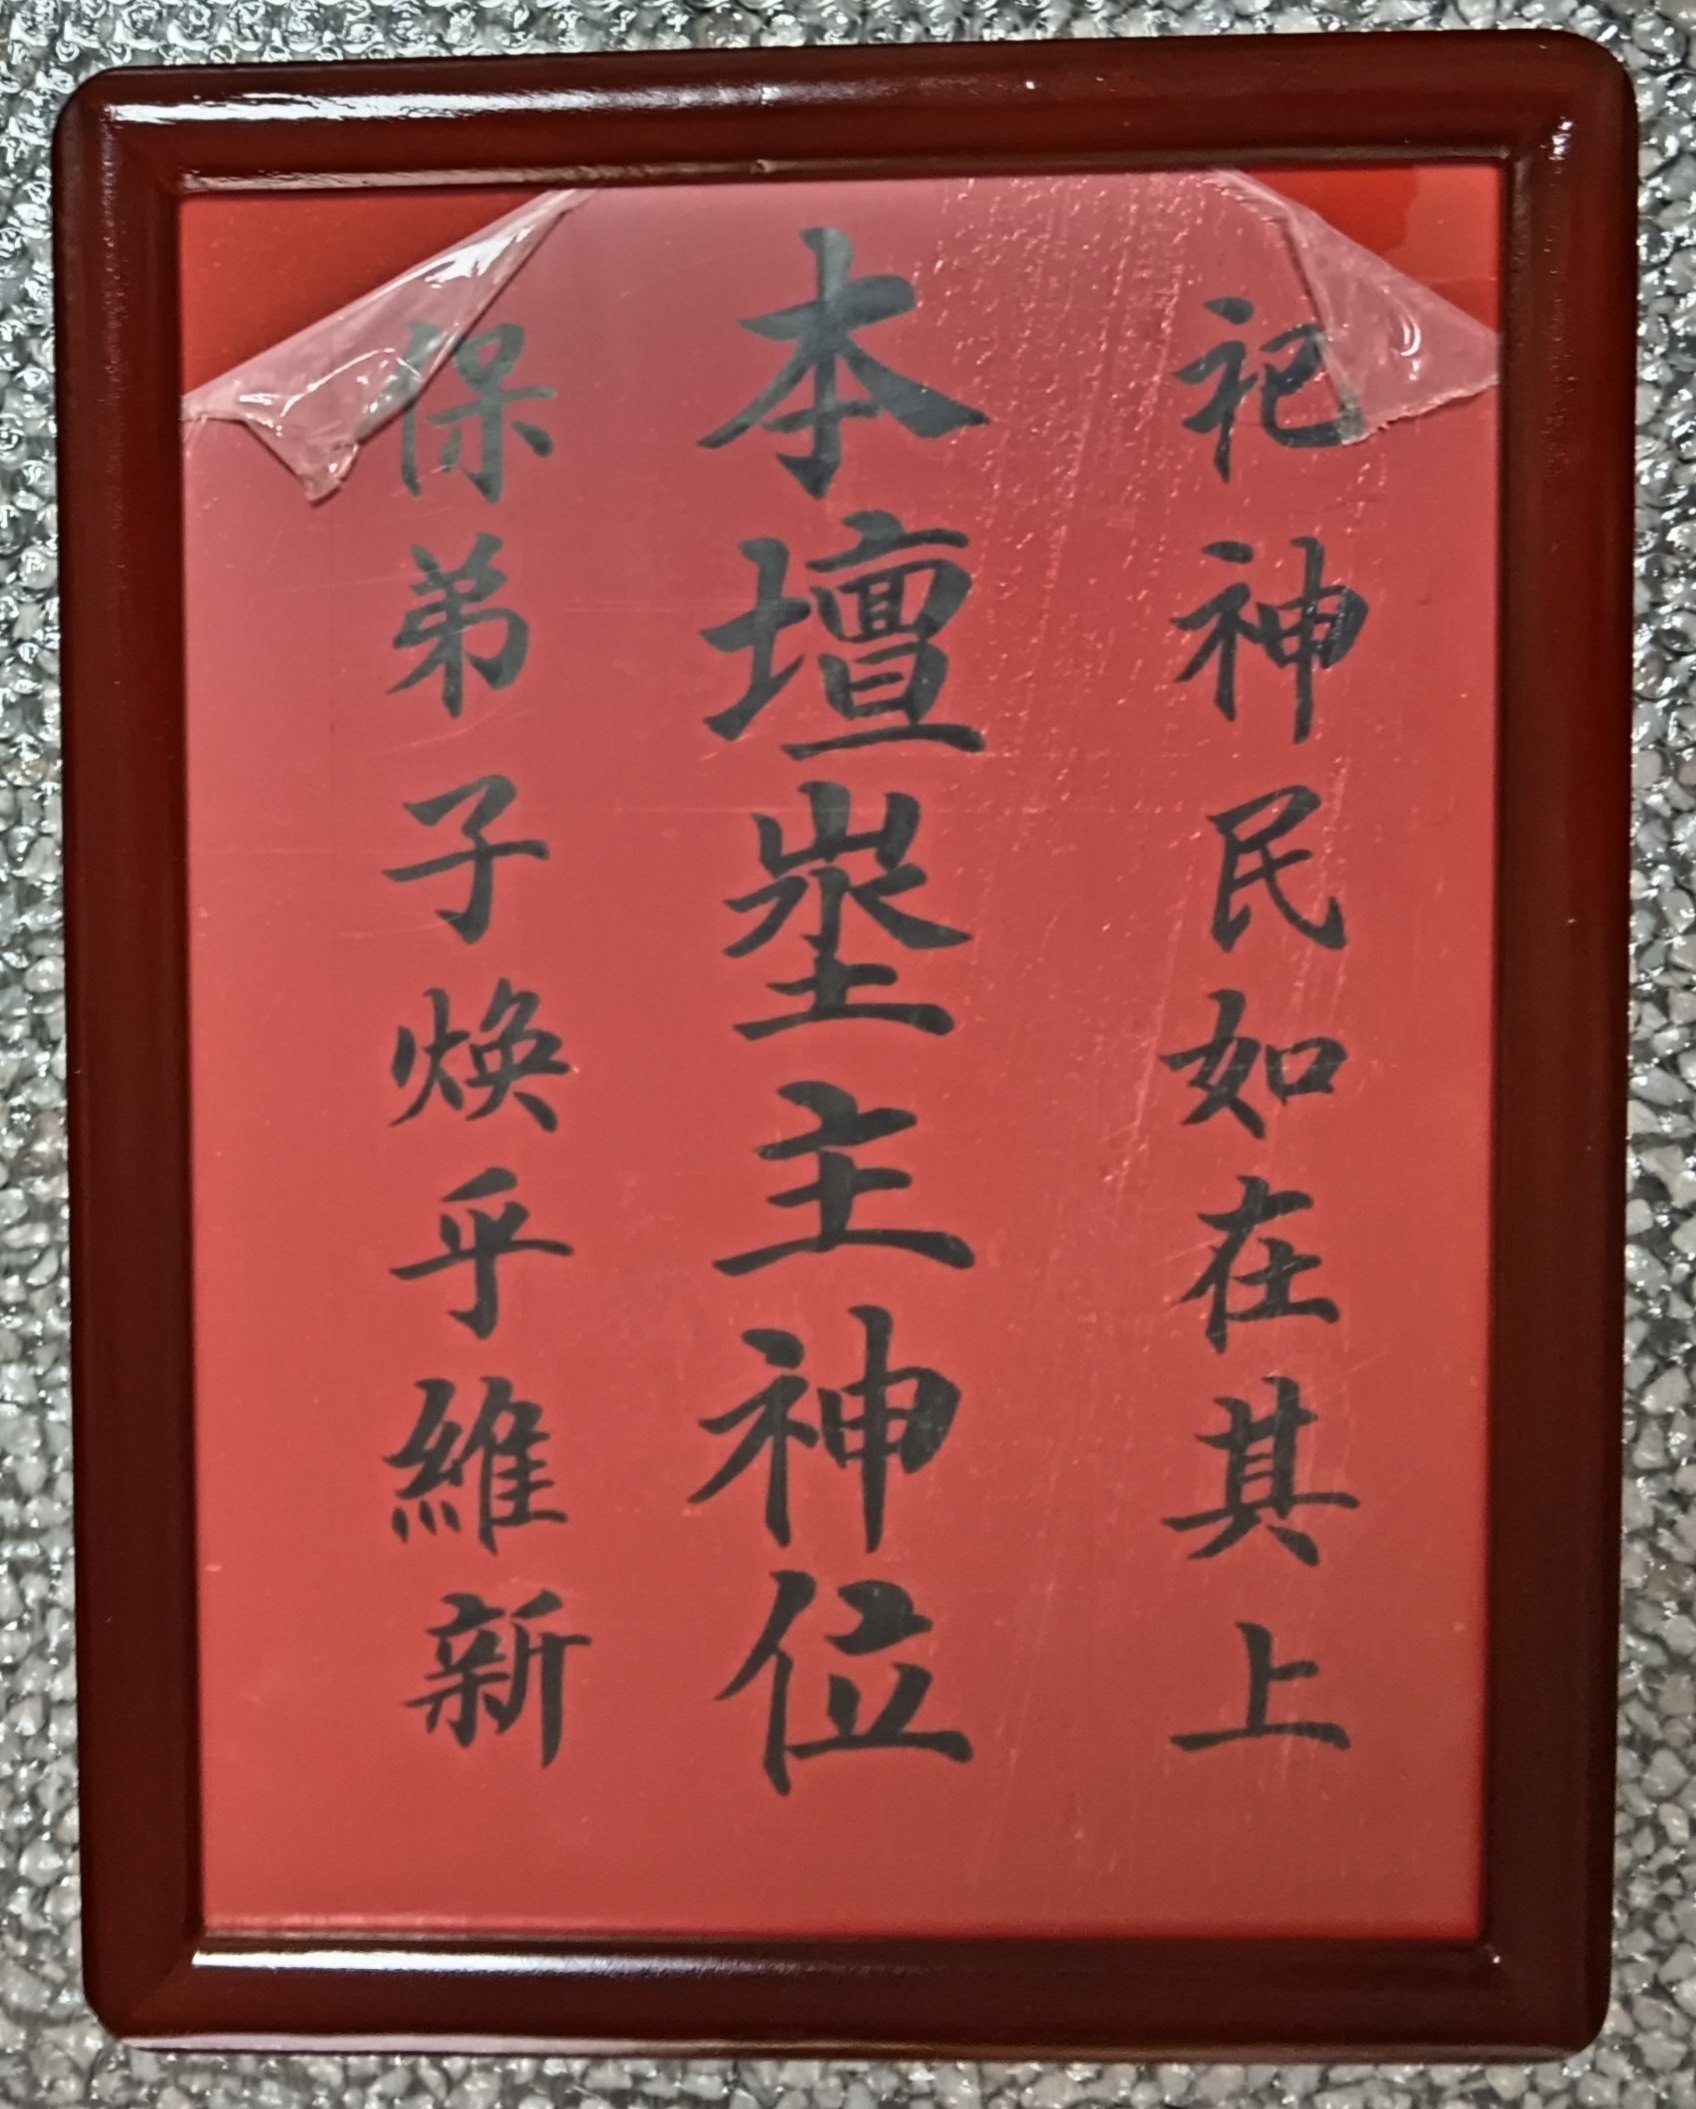 祀神民如在其上
本壇埊主神位
保弟子煥乎維新